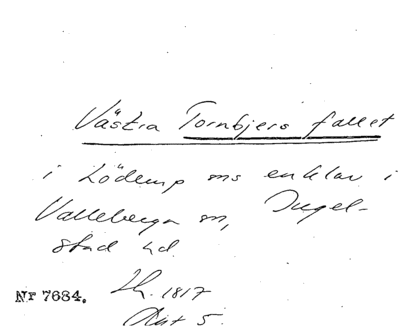 Västra Tornbjers fallet
i Löderup sns enklav i
Valleberga sn, Ingel-
stad hd.
Nr 7684.
1817
5.